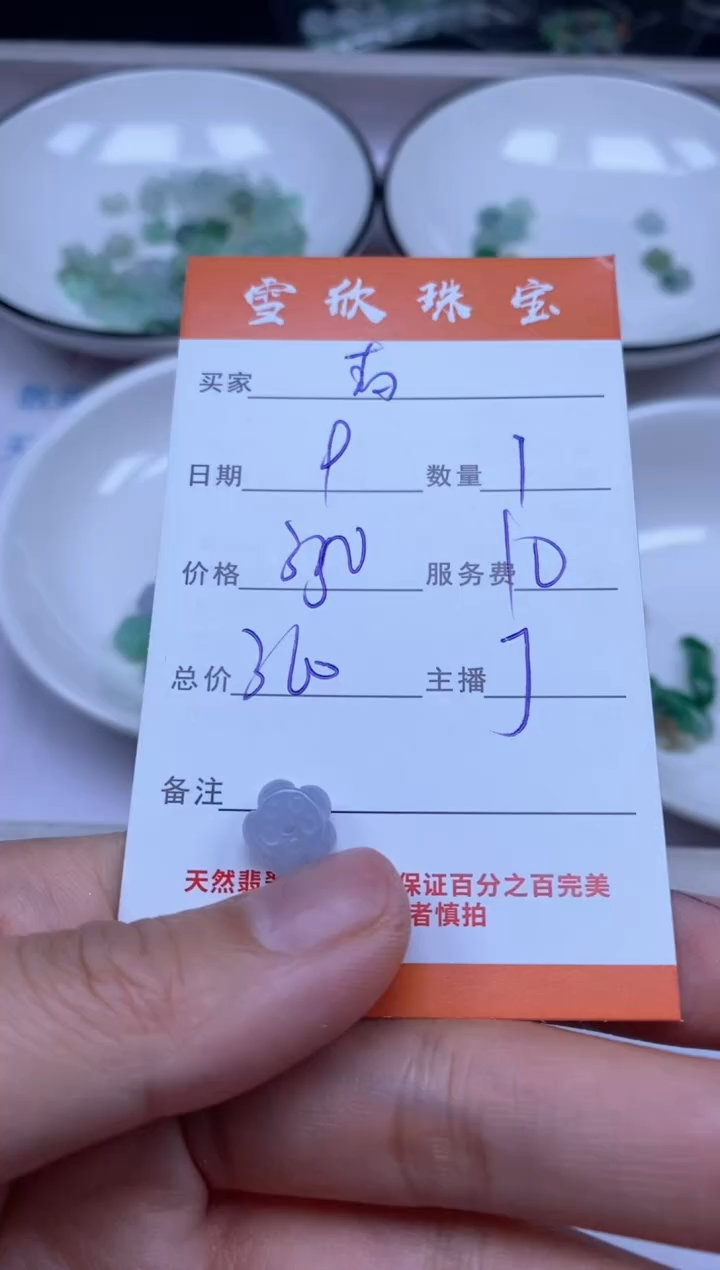 雪欣珠宝
买家 青
日期 9 数量 1
价格 350 服务费 10
总价 360 主播 J
备注
天然翡 保证百分之百完美
者慎拍